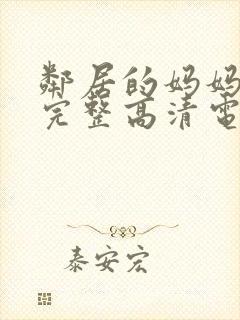 鄰居的妈妈
完整高清電
泰安宏